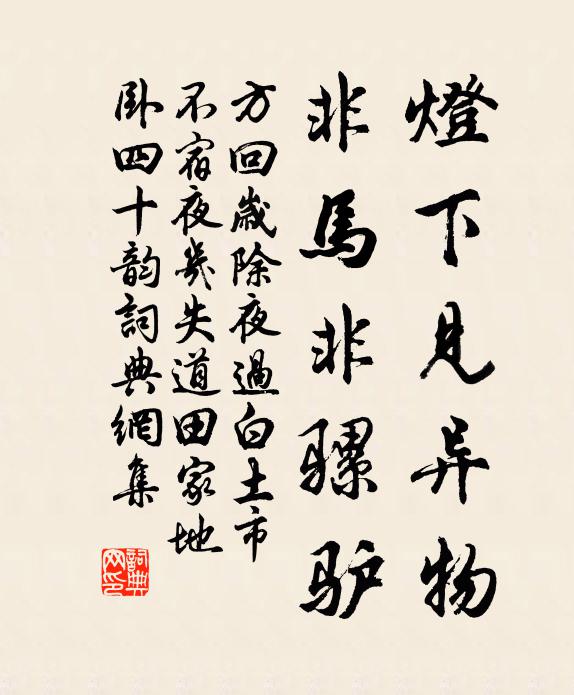 燈下見异物
非馬非骡驴
方回歲除夜過白土市
不宿夜幾失道田家地
卧四十韵詞典網集
詞典網印